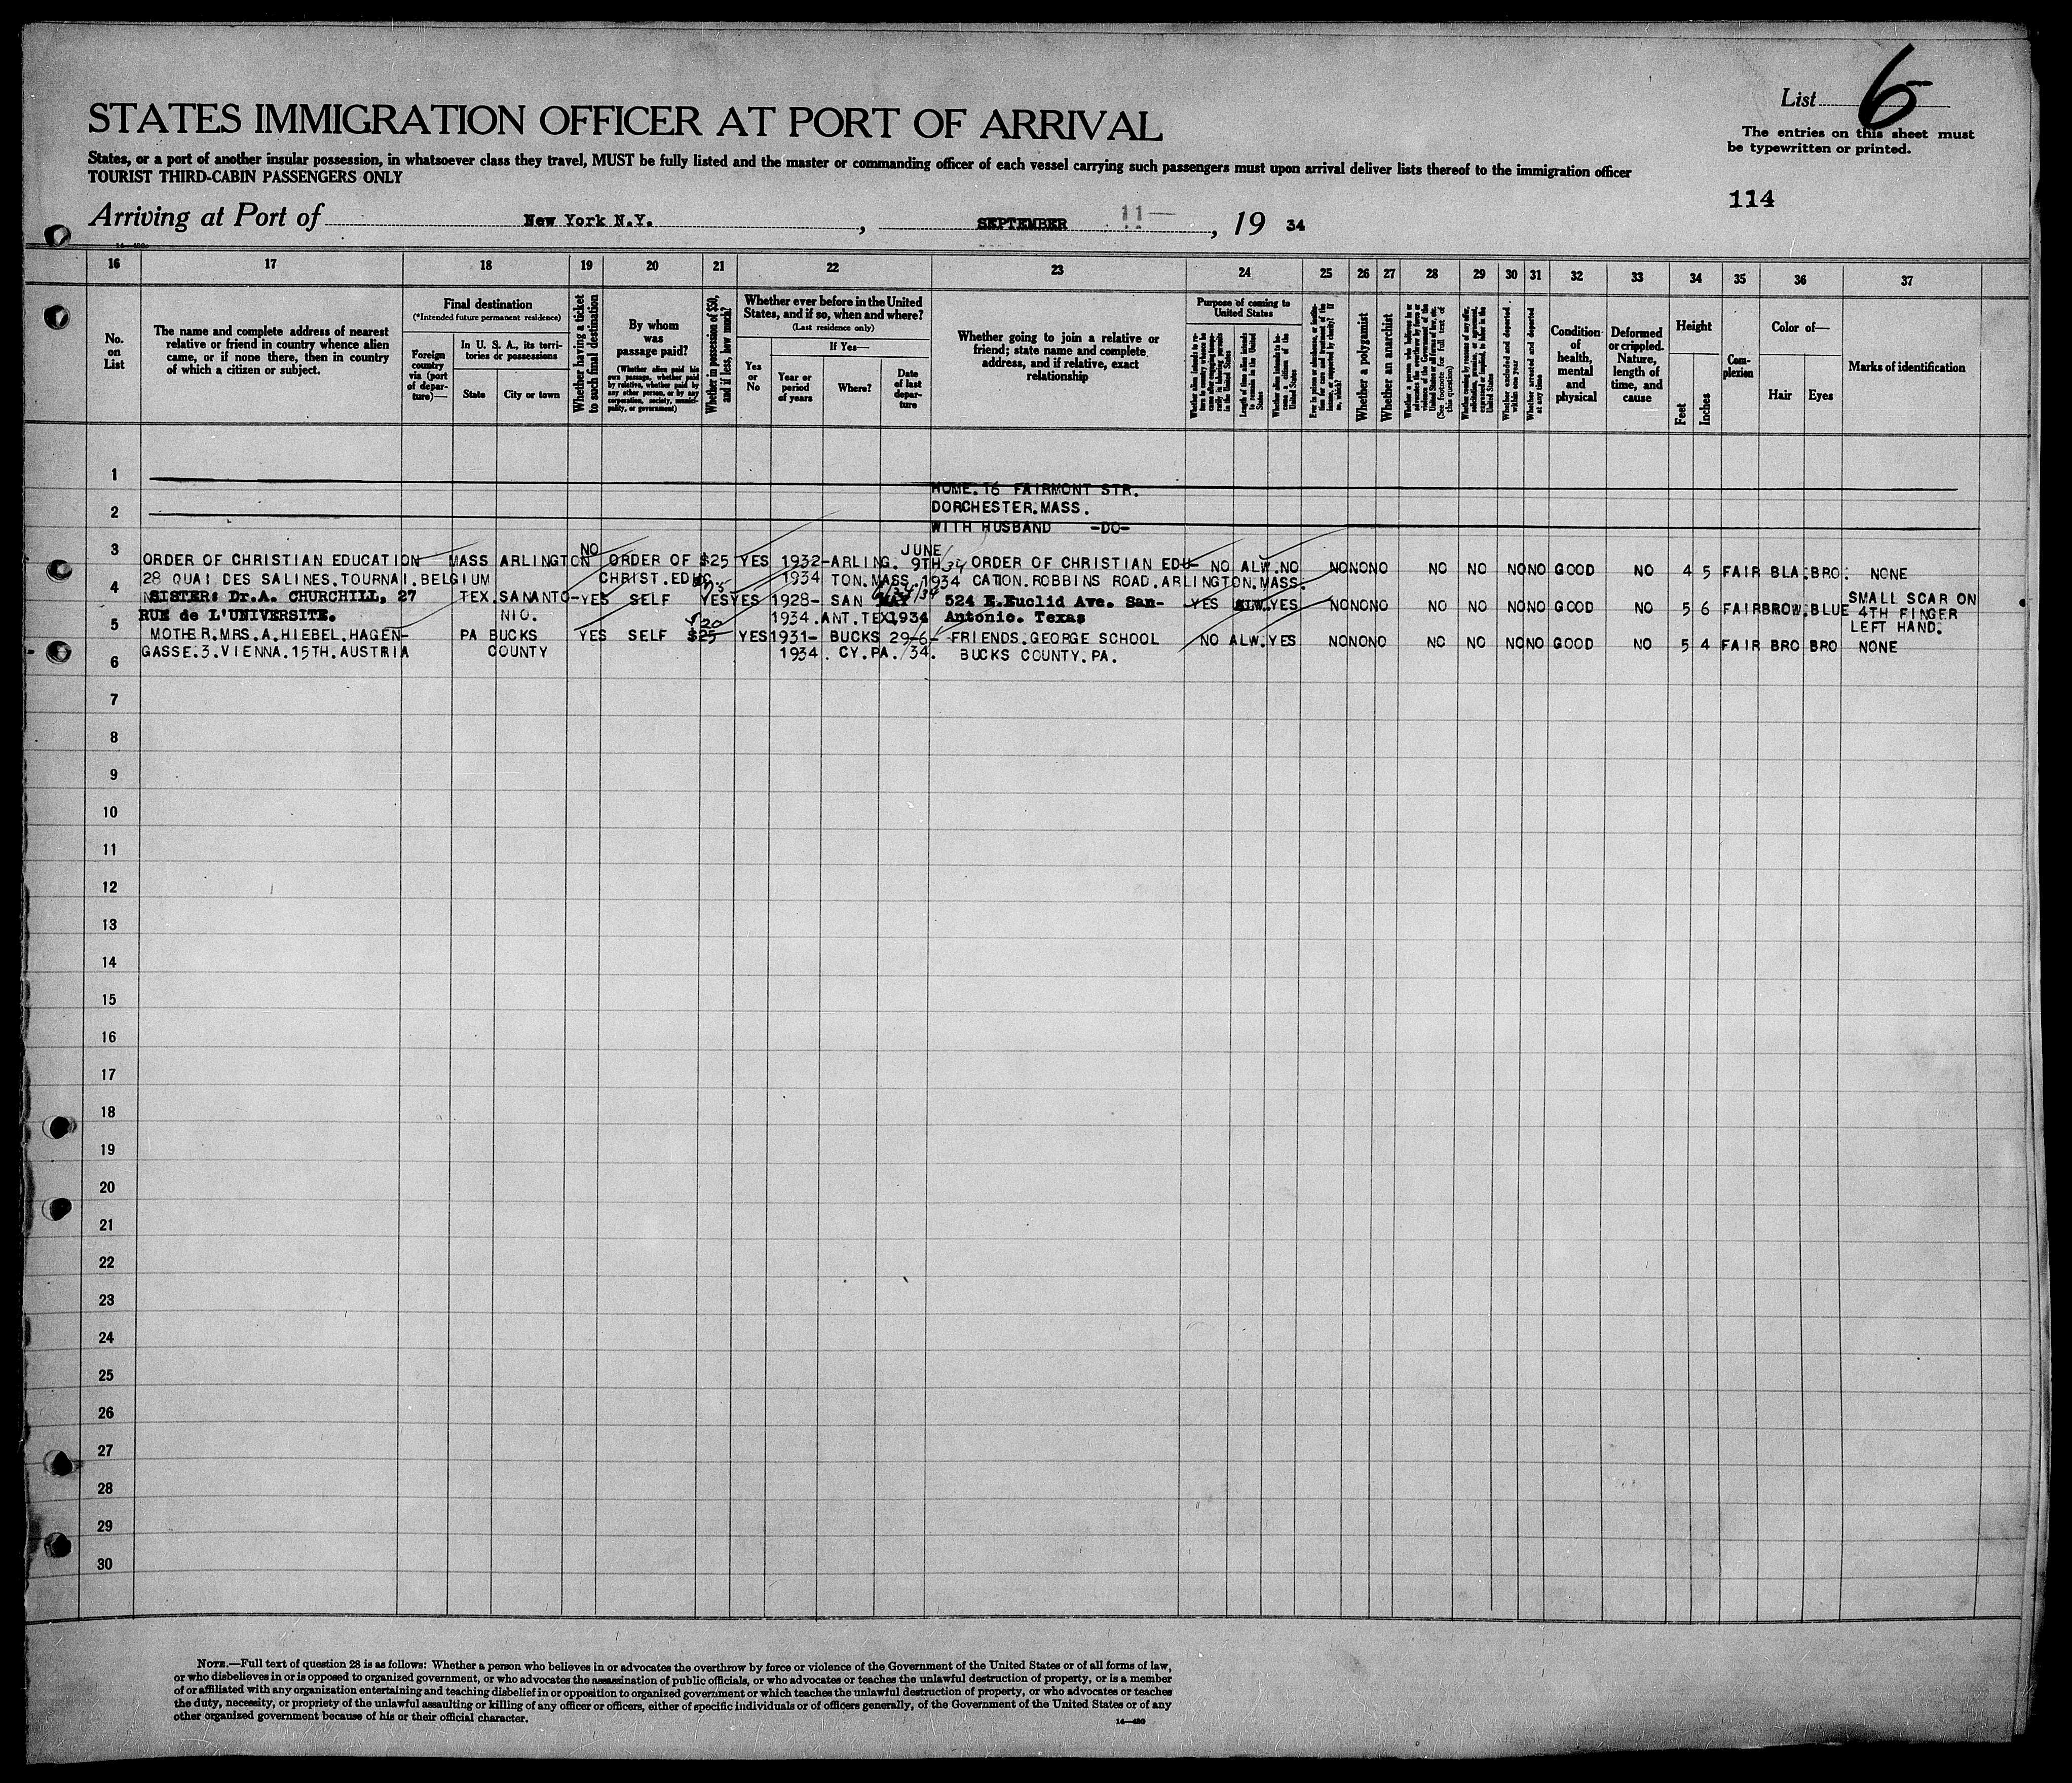 List 6
STATES IMMIGRATION OFFICER AT PORT OF ARRIVAL
The entries on this sheet must
be typewritten or printed.
States, or a port of another insular possession, in whatsoever class they travel, MUST be fully listed and the master or commanding officer of each vessel carrying such passengers must upon arrival deliver lists thereof to the immigration officer
TOURIST THIRD-CABIN PASSENGERS ONLY
114
Arriving at Port of New York N.Y., SEPTEMBER 11, 19 34
16 17 18 19 20 21 22 23 24 25 26 27 28 29 30 31 32 33 34 35 36 37
No.
on
List
The name and complete address of nearest
relative or friend in country whence alien
came, or if none there, then in country
of which a citizen or subject.
Final destination
(*Intended future permanent residence)
Foreign
country
via (port
of depar-
ture)—
In U. S. A., its terri-
tories or possessions
State
City or town
Whether having a ticket
to such final destination
By whom
was
passage paid?
(Whether alien paid his
own passage, whether paid
by relative, whether paid by
any other person, or by any
corporation, society, munici-
pality, or government)
Whether in possession of $50,
and if less, how much?
Whether ever before in the United
States, and if so, when and where?
(Last residence only)
Yes
or
No
If Yes—
Year or
period
of years
Where?
Date
of last
depar-
ture
Whether going to join a relative or
friend; state name and complete
address, and if relative, exact
relationship
Purpose of coming to
United States
Length of time alien intends
to remain in the United
States
Whether alien intends to be-
come a citizen of the
United States
Whether a polygamist
Whether an anarchist
Whether excluded and deported
within one year
Whether arrested and deported
at any time
Condition
of
health,
mental
and
physical
Deformed
or crippled.
Nature,
length of
time, and
cause
Height
Feet
Inches
Com-
plexion
Color of—
Hair
Eyes
Marks of identification
1
HOME. 16 FAIRMONT STR.
2
DORCHESTER.MASS.
WITH HUSBAND -DO-
3
NO JUNE
ORDER OF CHRISTIAN EDUCATION MASS ARLINGTON ORDER OF $25 YES 1932- ARLING. 9TH 34 ORDER OF CHRISTIAN EDU- NO ALW. NO NO NO NO NO NO NO NO GOOD NO 4 5 FAIR BLA. BRO. NONE
4
28 QUAI DES SALINES.TOURNAI.BELGIUM CHRIST.EDUC. 1934 TON.MASS. 1934 CATION.ROBBINS ROAD.ARLINGTON.MASS.
SISTER: Dr.A. CHURCHILL, 27 TEX. SAN ANTO- YES SELF YES YES 1928- SAN MAY 524 E.Euclid Ave. San- YES ALW. YES NO NO NO NO NO NO NO GOOD NO 5 6 FAIR BROW. BLUE SMALL SCAR ON
RUE de L'UNIVERSITE. NIO. 1934. ANT.TEX 1934 Antonio. Texas 4TH FINGER
LEFT HAND.
5
MOTHER.MRS.A.HIEBEL.HAGEN- PA BUCKS YES SELF $25 $20 YES 1931- BUCKS 29-6- FRIENDS.GEORGE SCHOOL NO ALW. YES NO NO NO NO NO NO NO GOOD NO 5 4 FAIR BRO BRO NONE
GASSE.3.VIENNA.15TH.AUSTRIA COUNTY 1934. CY.PA. /34. BUCKS COUNTY.PA.
6
7
8
9
10
11
12
13
14
15
16
17
18
19
20
21
22
23
24
25
26
27
28
29
30
NOTE.—Full text of question 28 is as follows: Whether a person who believes in or advocates the overthrow by force or violence of the Government of the United States or of all forms of law,
or who disbelieves in or is opposed to organized government, or who advocates the assassination of public officials, or who advocates or teaches the unlawful destruction of property, or is a member
of or affiliated with any organization entertaining and teaching disbelief in or opposition to organized government or which teaches the unlawful destruction of property, or who advocates or teaches
the duty, necessity, or propriety of the unlawful assaulting or killing of any officer or officers, either of specific individuals or of officers generally, of the Government of the United States or of any
other organized government because of his or their official character.
14—430